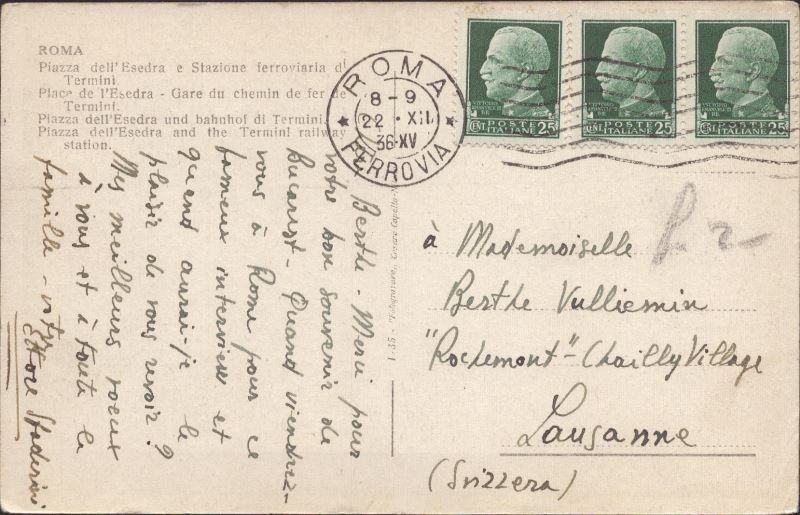 ROMA
Piazza dell'Esedra e Stazione ferroviaria di
Termini.
Place de l'Esedra - Gare du chemin de fer de
Termini.
Piazza dell'Esedra und bahnhof di Termini.
Piazza dell'Esedra and the Termini railway
station.
ROMA
8-9
22 · XII
36·XV
FERROVIA
POSTE
CENT ITALIANE 25
POSTE
CENT ITALIANE 25
POSTE
CENT ITALIANE 25
Berthe - Merci pour
votre bon souvenir de
Bucarest - Quand viendrez-
vous à Rome pour ce
fameux interview et
quand aurai-je le
plaisir de vous revoir?
Mes meilleurs voeux
à vous et à toute la
famille - votre
Ettore
1-35 -
à Mademoiselle
Berthe Vulliemin
"Rochemont" - Chailly Village
Lausanne
(Svizzera)